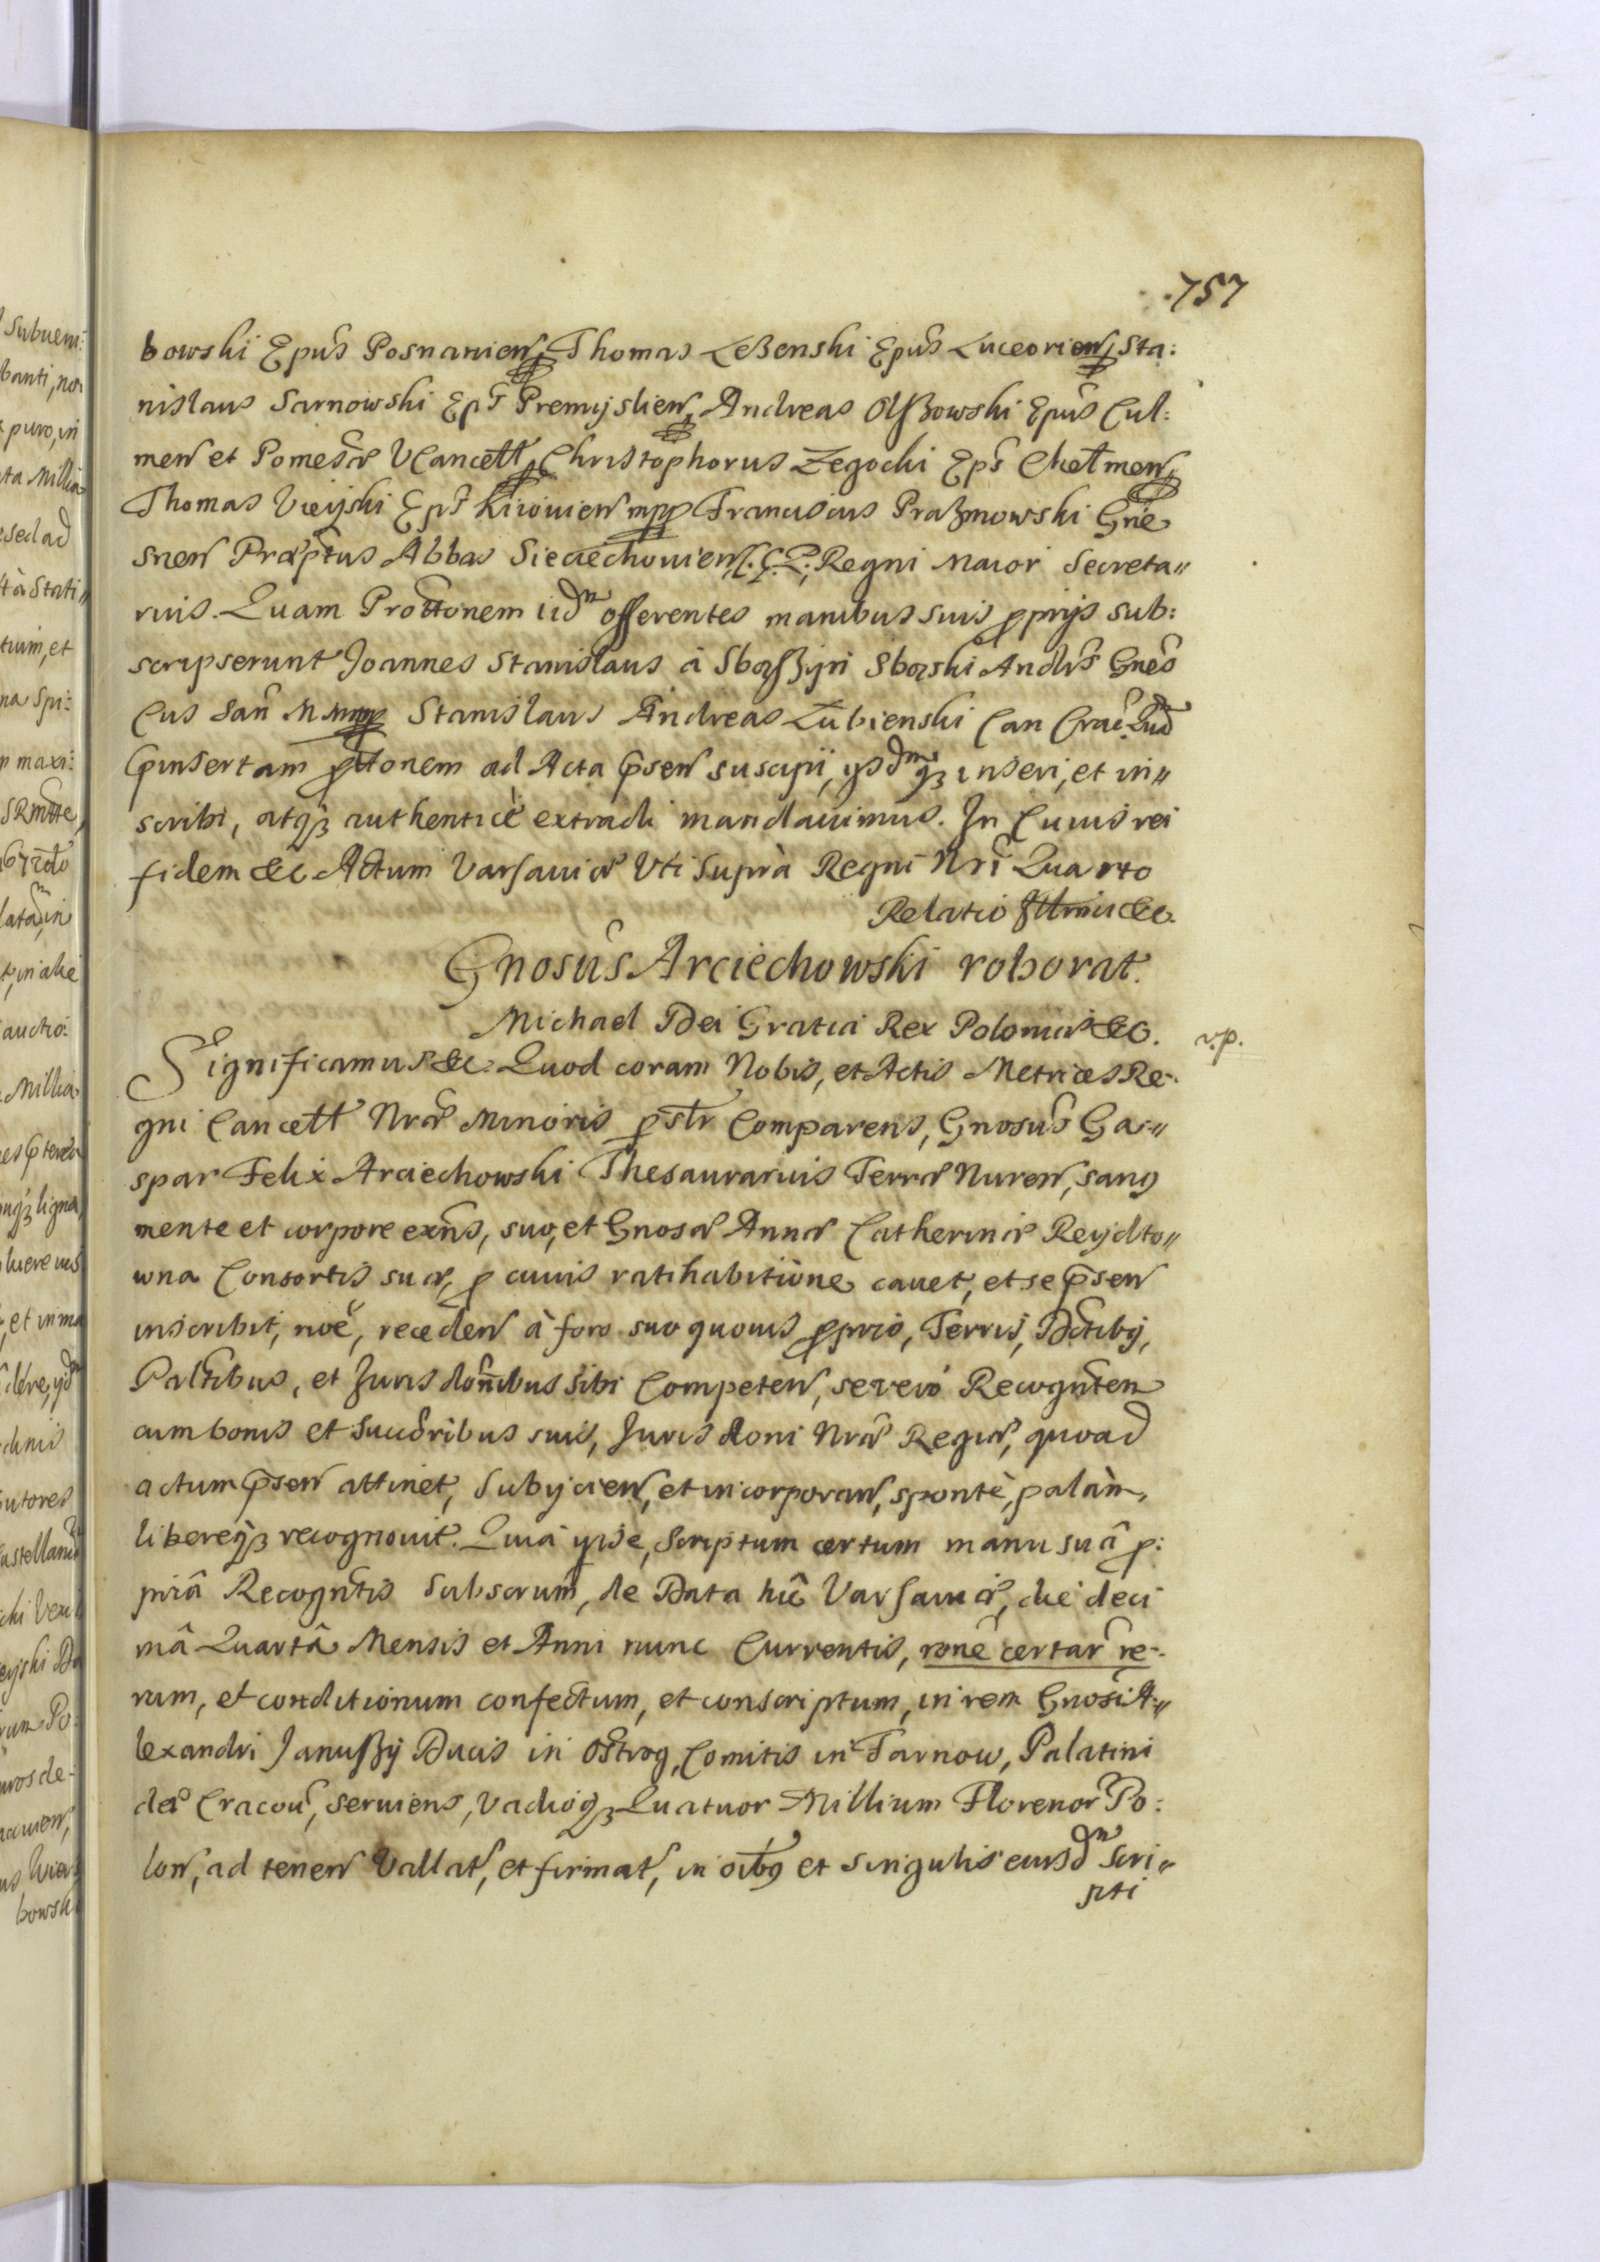 757
bowski Epus Posnanien, Thomas Leßenski Epus Luceorien, Sta:
nislaus Sarnowski Eps Premyslien, Andreas Olßowski Epus Cul:
men et Pomesae VCancell, Christophorus Zegocki Eps Chełmen,
Thomas Vieyski Eps Kiiouien mpp Franciscus Praßmowski Gne
snen Praeptus Abbas Sieciechouien, Regni Maior Secreta"
rius. Quam Prottonem iidm offerentes manibus suis pprijs sub:
scripserunt Joannes Stanislaus à Sbosßyn Sboski Andrs Gnes
Cus San Mmpp Stanislaus Andreas Łubienski Can Crac. Qua
Pinsertam pttonem ad Acta Psen suscipi, ysdmqz inseri, et in"
scribi, atqz authenticè extradi mandauimus. In Cuius rei
fidem &c Actum Varsauiae Vti Suprà Regni Nri Quarto
Relatio Illmi &c.
Gnosus Arciechowski roborat.
Michael Dei Gratia Rex Poloniae &c.
v.p.
Significamus &c. Quod coram Nobis, et Actis Metrices Re-
gni Cancell Nrae Minoris pstr Comparens, Gnosus Ga-"
spar Felix Arciechowski Thesaurarius Terrae Nuren, sang
mente et corpore exns, suo, et Gnosae Annae Catherinae Reydto"
wna Consortis suae, p cuius ratihabitione cauet, et se psen
inscribit, noe, receden à foro suo quouis pprio, Terris, Dctiby,
Palтibus, et Jurisdonibus sibi Competen, se verò Recognten
cum bonis et Succoribus suis, Jurisdoni Nrae Regiae, quoad
actum psen attinet, Subijcien, et incorporan, spontè, palàm,
libereqz recognouit. Quiâ ipse, Scriptum certum manu suâ p:
priâ Recogntis Subscrum, de Data hîc Varsauiae, die deci
mâ Quartâ Mensis et Anni nunc Currentis, rone certar re-
rum, et conditionum confectum, et conscriptum, in rem Gnosi A-"
lexandri Janußij Ducis in Ostrog, Comitis in Tarnow, Palatini
der Cracou, seruiens, Vadioqz Quatuor Millium Florenor Po:
lon, ad tenen Vallat, et firmat, in oibg et singulis eiusdm Scri"
pti